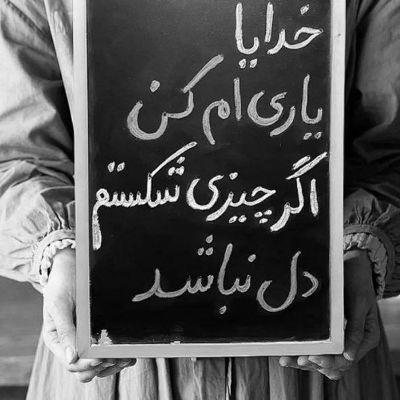 خدایا
یاری ام کن
اگر چیزی شکستم
دل نباشد